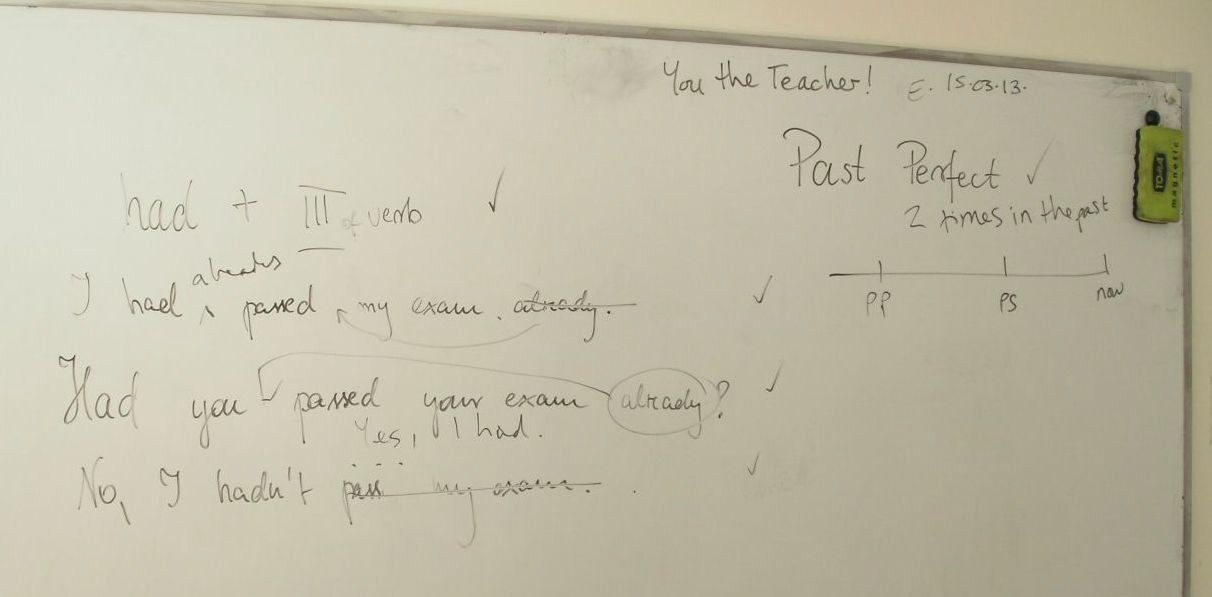 You the Teacher! E. 15.03.13.
Past Perfect ✓
2 times in the past
PP PS now
TOMA magnetic
had + III of verb ✓
already
I had passed my exam. already. ✓
Had you passed your exam already? ✓
Yes, I had.
No, I hadn't pass my exam. ✓